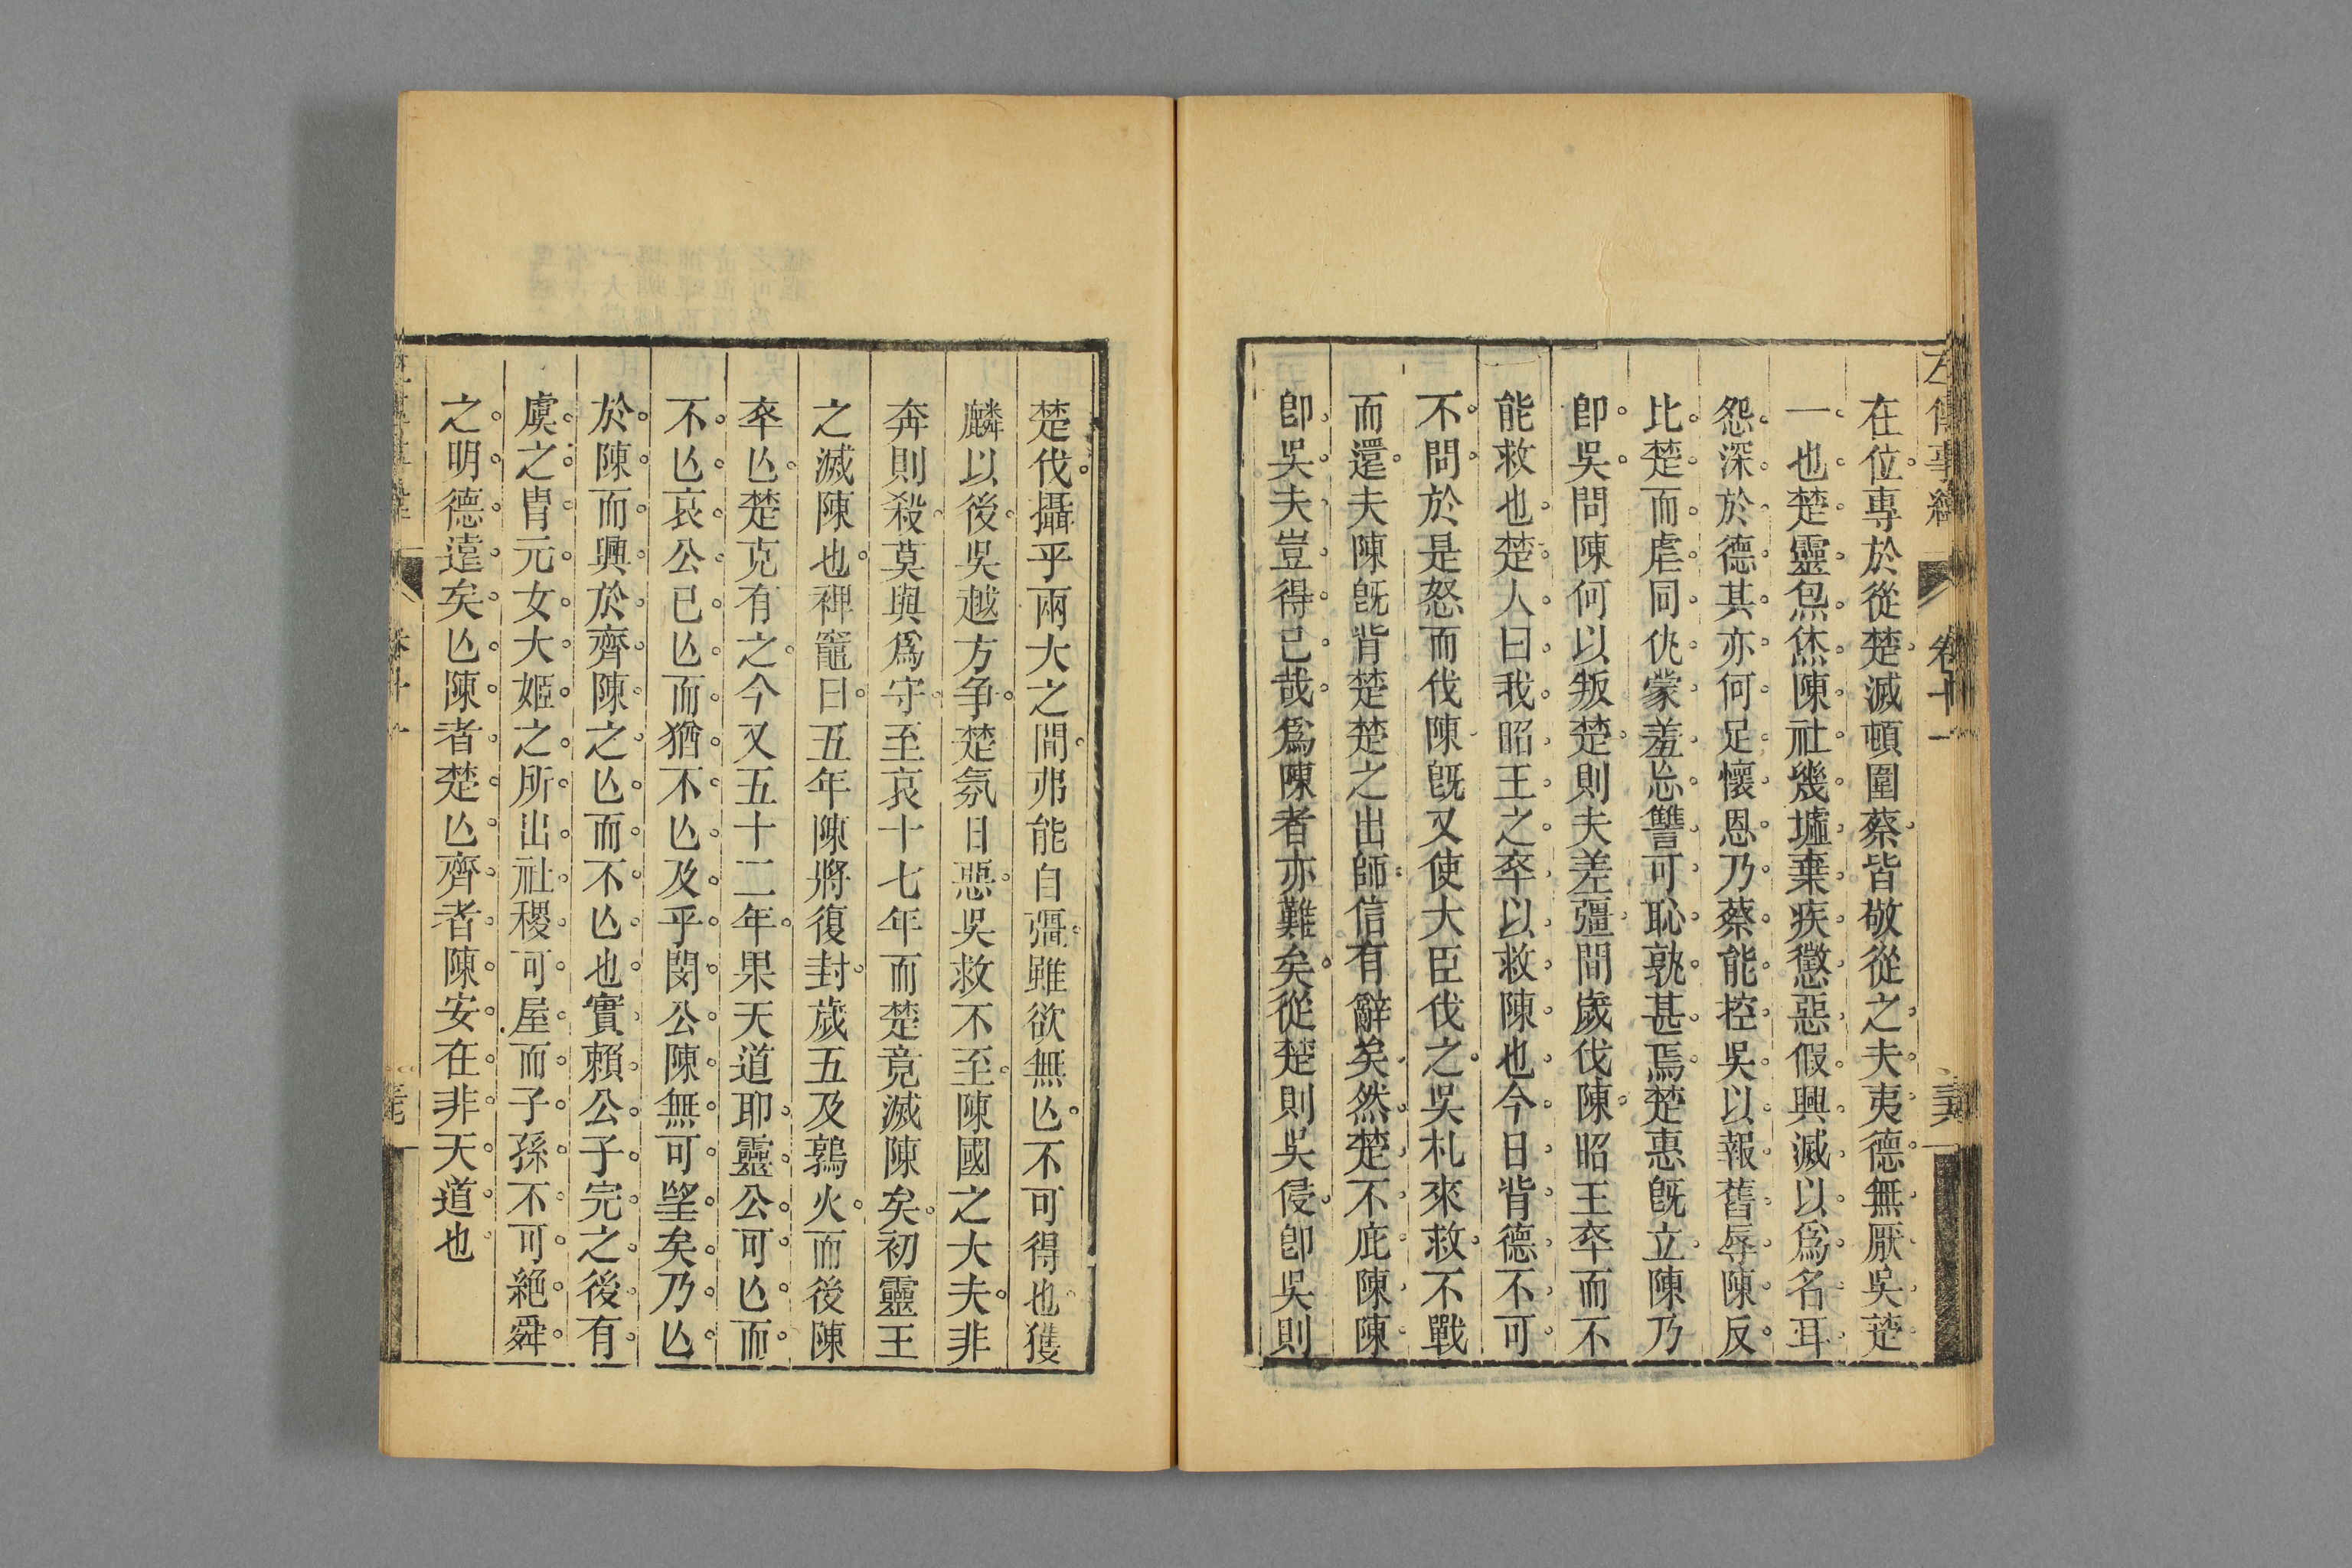 左傳事緯
卷十一
在位專於從楚滅頓圍蔡皆敬從之夫夷德無厭吳楚
一也楚靈炰烋陳社幾墟棄疾懲惡假興滅以爲名耳
怨深於德其亦何足懷恩乃蔡能控吳以報舊辱陳反
比楚而虐同仇蒙羞忘讐可恥孰甚焉楚惠旣立陳乃
卽吳問陳何以叛楚則夫差彊間歲伐陳昭王卒而不
能救也楚人曰我昭王之卒以救陳也今日背德不可
不問於是怒而伐陳旣又使大臣伐之吳札來救不戰
而還夫陳旣背楚楚之出師信有辭矣然楚不庇陳陳
卽吳夫豈得已哉爲陳者亦難矣從楚則吳侵卽吳則
楚伐攝乎兩大之間弗能自彊雖欲無亾不可得也獲
麟以後吳越方争楚氛日惡吳救不至陳國之大夫非
奔則殺莫與爲守至哀十七年而楚竟滅陳矣初靈王
之滅陳也裨竈曰五年陳將復封歲五及鶉火而後陳
卒亾楚克有之今又五十二年果天道耶靈公可亾而
不亾哀公已亾而猶不亾及乎閔公陳無可望矣乃亾
於陳而興於齊陳之亾而不亾也實賴公子完之後有
虞之胄元女大姬之所出社稷可屋而子孫不可絶舜
之明德遠矣亾陳者楚亾齊者陳安在非天道也
卷十一